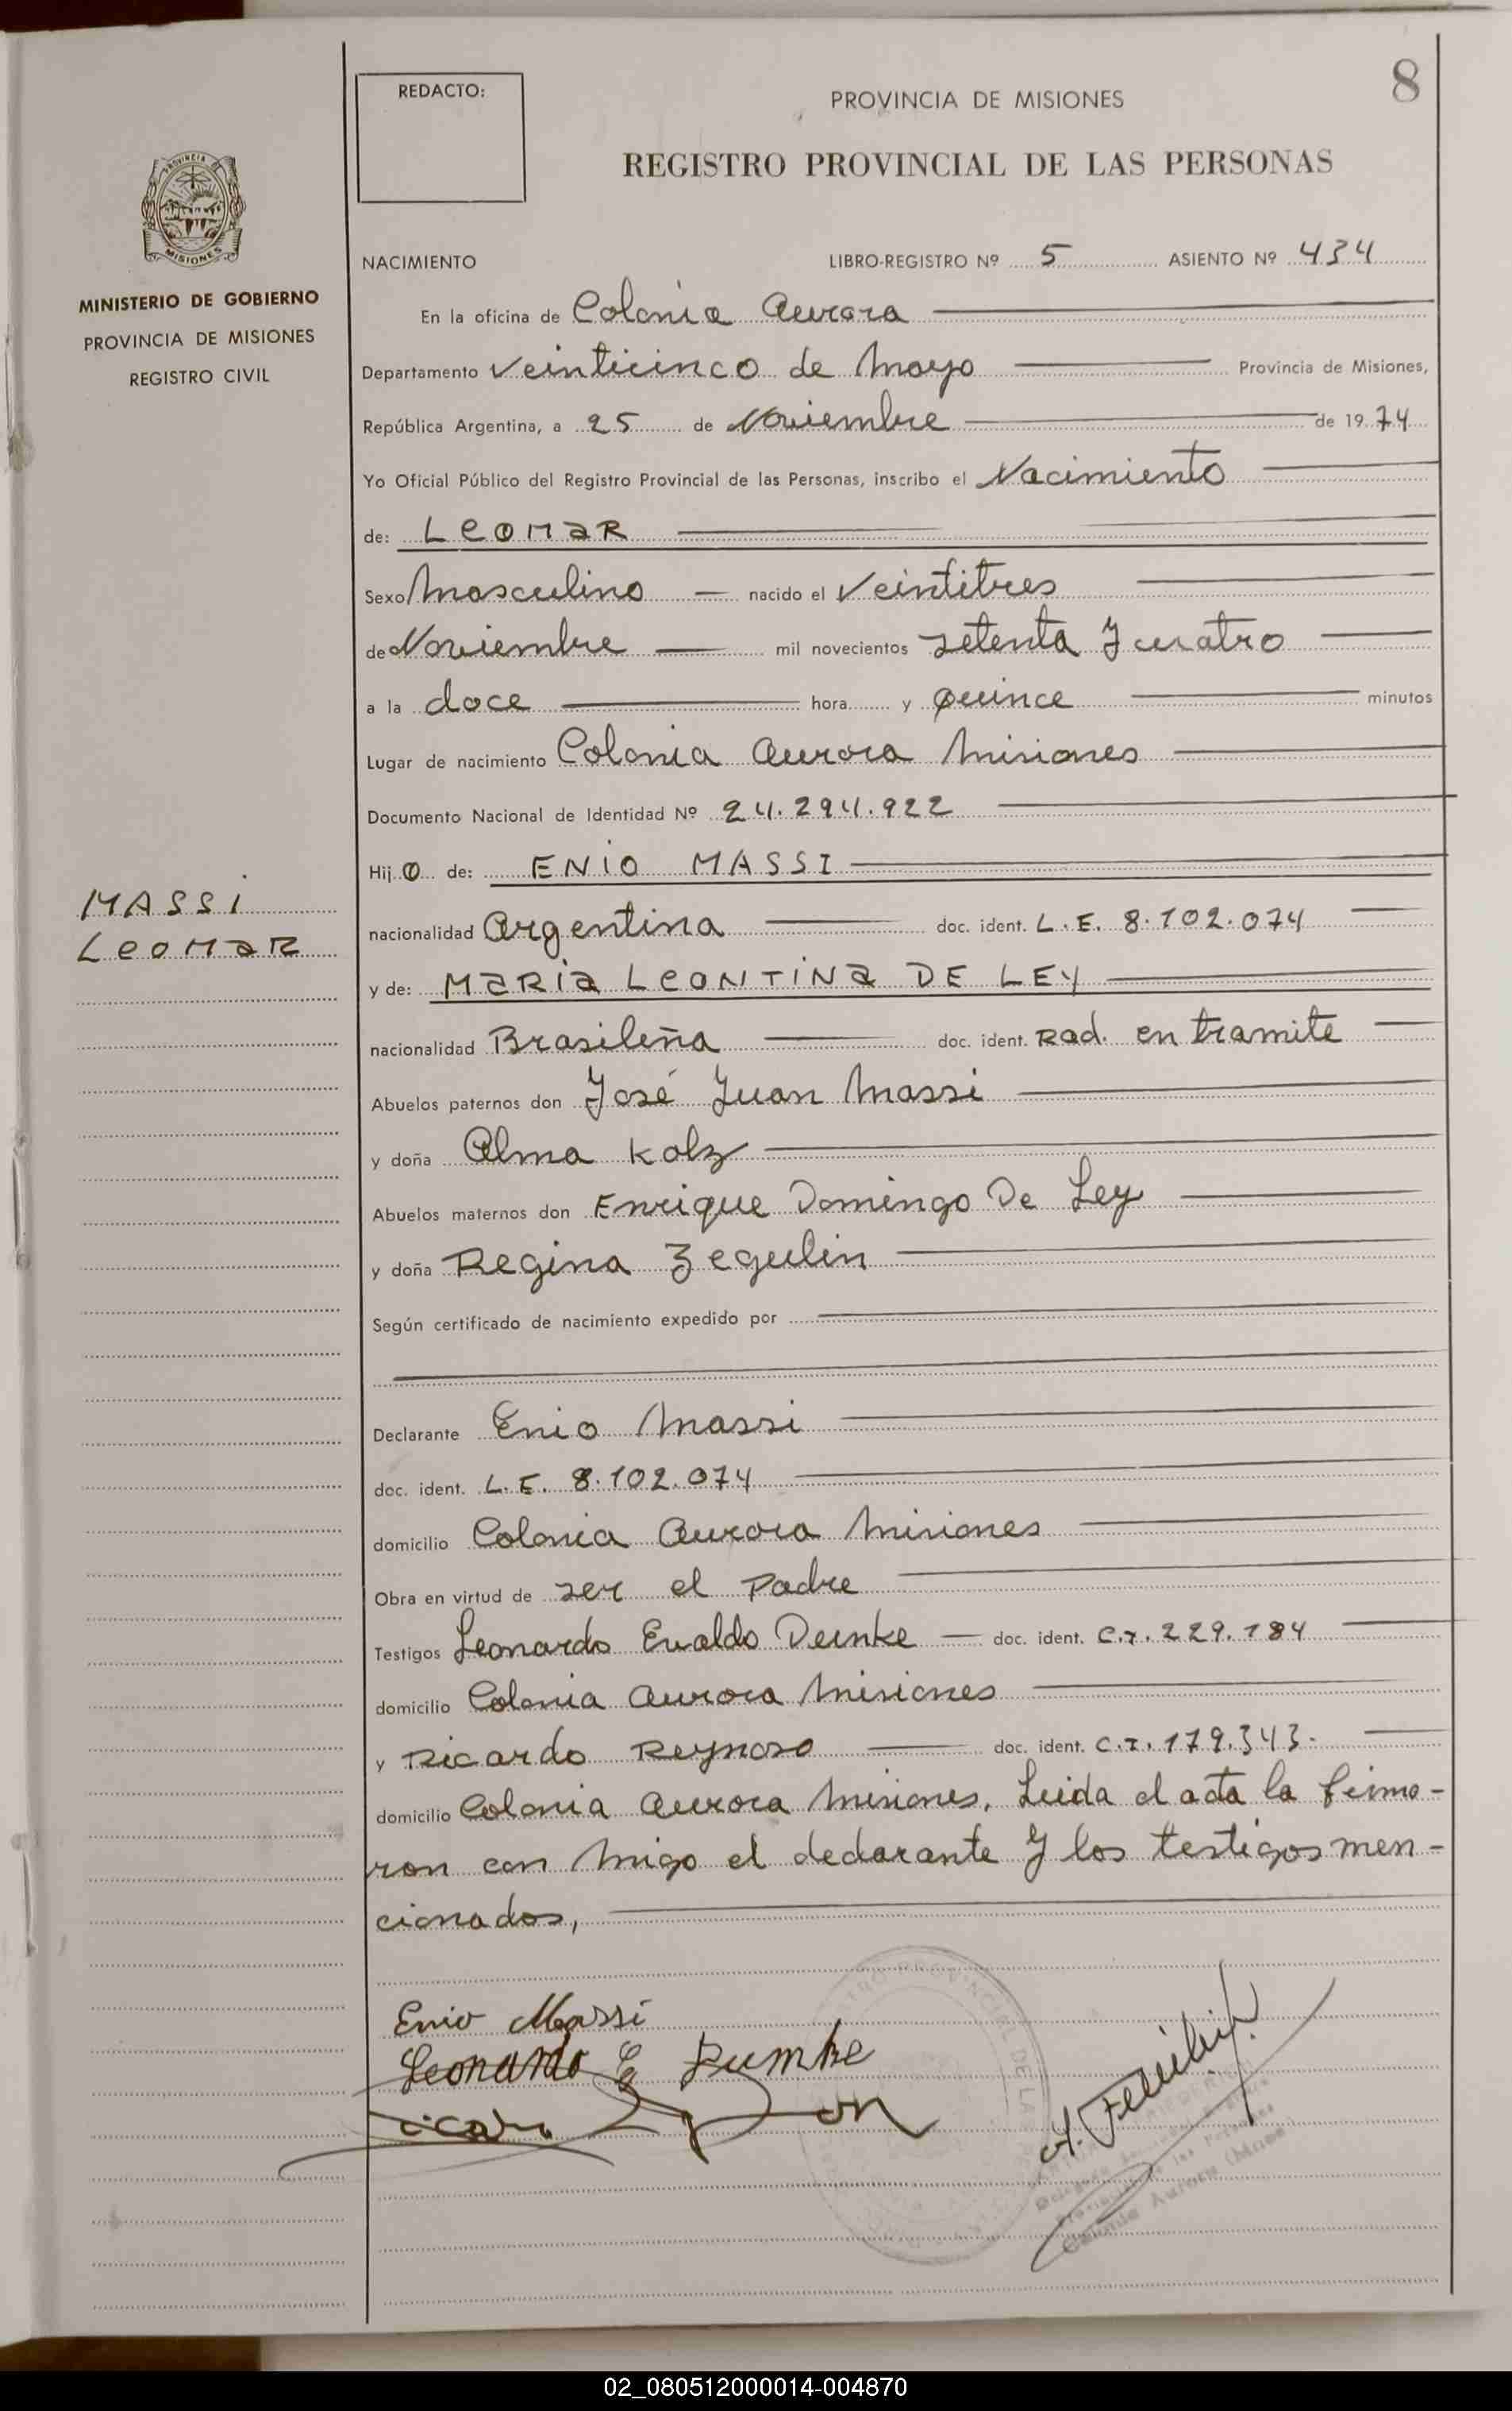 8
REDACTO:
PROVINCIA DE MISIONES
REGISTRO PROVINCIAL DE LAS PERSONAS
PROVINCIA
MISIONES
MINISTERIO DE GOBIERNO
PROVINCIA DE MISIONES
REGISTRO CIVIL
MASSI
LEOMAR
NACIMIENTO LIBRO-REGISTRO Nº 5 ASIENTO Nº 434
En la oficina de Colonia Aurora
Departamento Veinticinco de Mayo Provincia de Misiones,
República Argentina, a 25 de Noviembre de 1974
Yo Oficial Público del Registro Provincial de las Personas, inscribo el Nacimiento
de: LEOMAR
Sexo Masculino nacido el Veintitres
de Noviembre mil novecientos setenta y cuatro
a la doce hora y quince minutos
Lugar de nacimiento Colonia Aurora Misiones
Documento Nacional de Identidad Nº 24.294.922
Hijo de: ENIO MASSI
nacionalidad Argentina doc. ident. L.E. 8.102.074
y de: MARIA LEONTINA DE LEY
nacionalidad Brasileña doc. ident. Rad. en tramite
Abuelos paternos don José Juan Massi
y doña Alma Kolz
Abuelos maternos don Enrique Domingo De Ley
y doña Regina Zegulin
Según certificado de nacimiento expedido por
Declarante Enio Massi
doc. ident. L.E. 8.102.074
domicilio Colonia Aurora Misiones
Obra en virtud de ser el Padre
Testigos Leonardo Evaldo Deunke doc. ident. C.I. 229.184
domicilio Colonia Aurora Misiones
y Ricardo Reynoso doc. ident. C.I. 179.343.
domicilio Colonia Aurora Misiones. Leida el acta la firma-
ron con migo el declarante y los testigos men-
cionados,
Enio Massi
Leonardo E
02_080512000014-004870